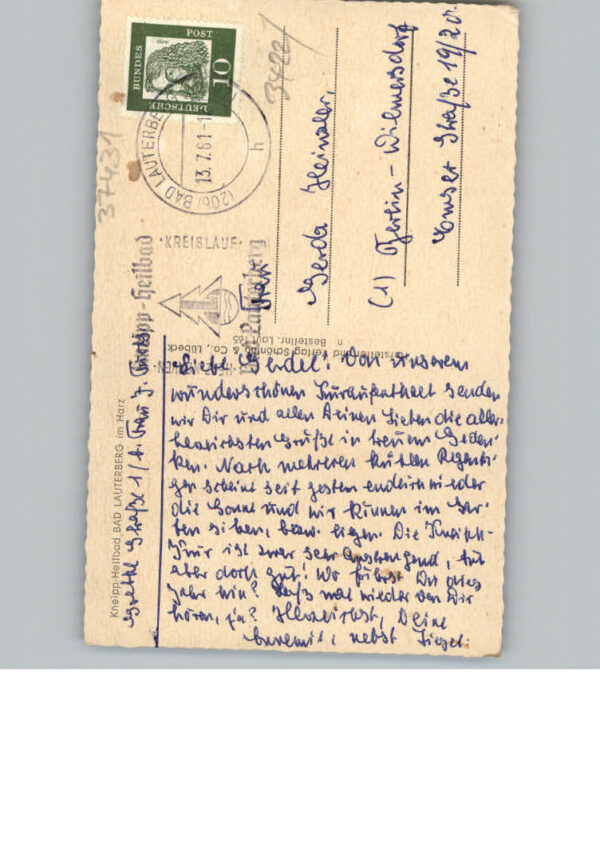 DEUTSCHE
BUNDES
POST
10
(20b) BAD LAUTERBE
13.7.61-1
h
37431
3422/
·KREISLAUF·
Kneipp-Heilbad
Bad Lauterberg
Frau
Gerda Heinzler,
(1) Berlin-Wilmersdorf
Emser Straße 19/20.
Hersteller und Verlag Schöning & Co., Lübeck
Bestellnr. Lau 65
Kneipp-Heilbad BAD LAUTERBERG im Harz
Goethe Straße 1/b. Frau J.
Liebe Gerdel! Von unserem
wunderschönen Kuraufenthalt senden
wir Dir und allen Deinen Lieben die aller-
herzlichsten Grüße in treuem Geden-
ken. Nach mehreren kühlen Regenta-
gen scheint seit gestern endlich wieder
die Sonne und wir können im Gar-
ten sitzen, bezw. liegen. Die Kneipp-
Kur ist zwar sehr anstrengend, tut
aber doch gut! Wo fährst Du dies
Jahr hin? Laß mal wieder von Dir
hören, ja? Herzlichst, Deine
nebst